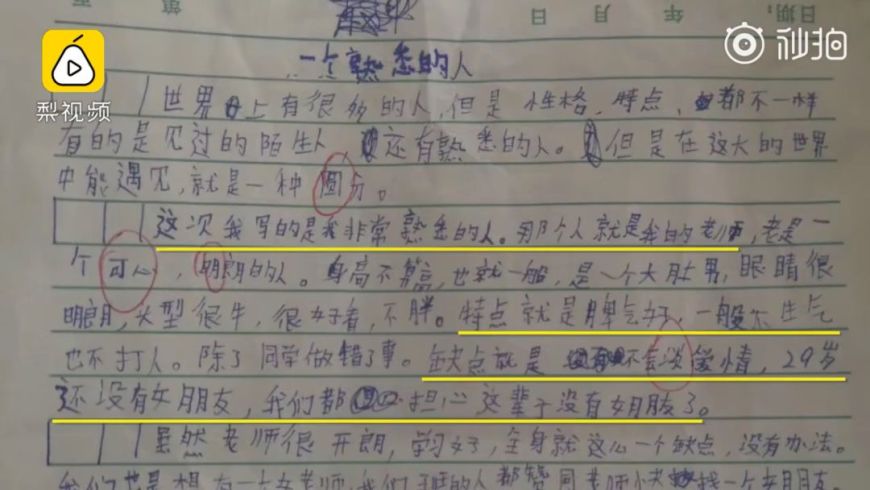 第
日期: 年 月 日
梨视频
秒拍
一个熟悉的人
世界上有很多的人,但是性格、特点、都不一样
有的是见过的陌生人 还有熟悉的人。但是在这大的世界
中能遇见,就是一种圆分。
这次我写的是我非常熟悉的人。那个人就是我的老师,老是一
个可心,明朗的人。身高不算高,也就一般,是一个大肚男,眼睛很
明朗,大型很牛,很好看,不胖。特点就是脾气好,一般不生气
也不打人。除了同学做错了事。缺点就是不会淡爱情,29岁
还没有女朋友,我们都担心这辈子没有女朋友了。
虽然老师很开朗,学习好,全身就这么一个缺点,没有办法。
我们也是想有一女老师,我们班的人都赞同老师快找一个女朋友。